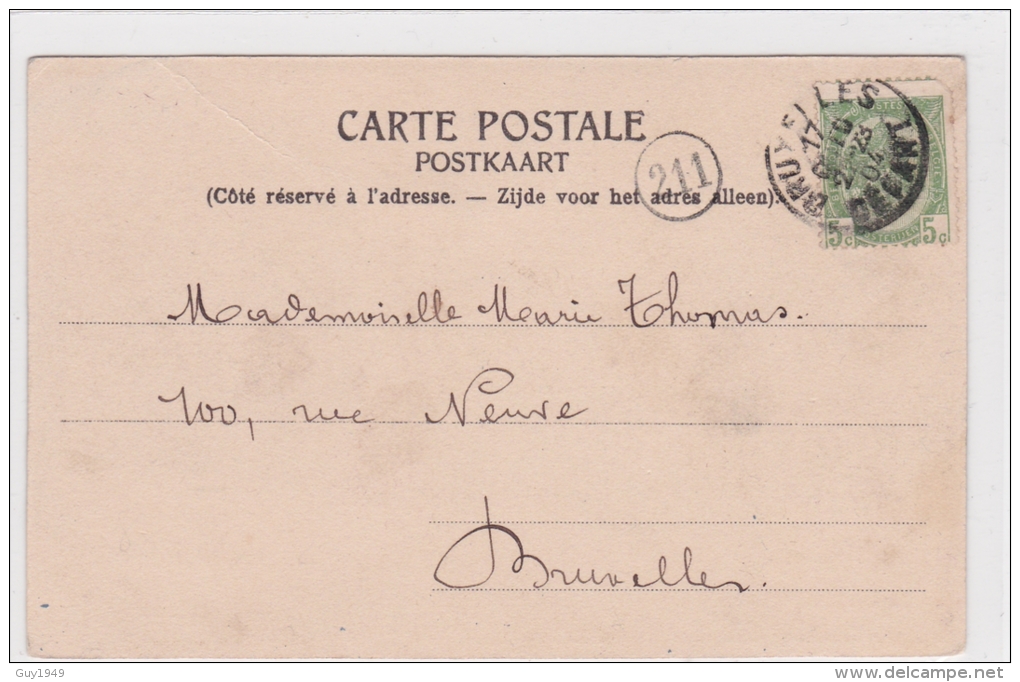 CARTE POSTALE
POSTKAART
(Côté réservé à l'adresse. — Zijde voor het adres alleen).
211
BRUXELLES
DÉPART
5c 5c
Mademoiselle Marie Thomas.
100, rue Neuve
Bruxelles.
Guy1949
www.delcampe.net